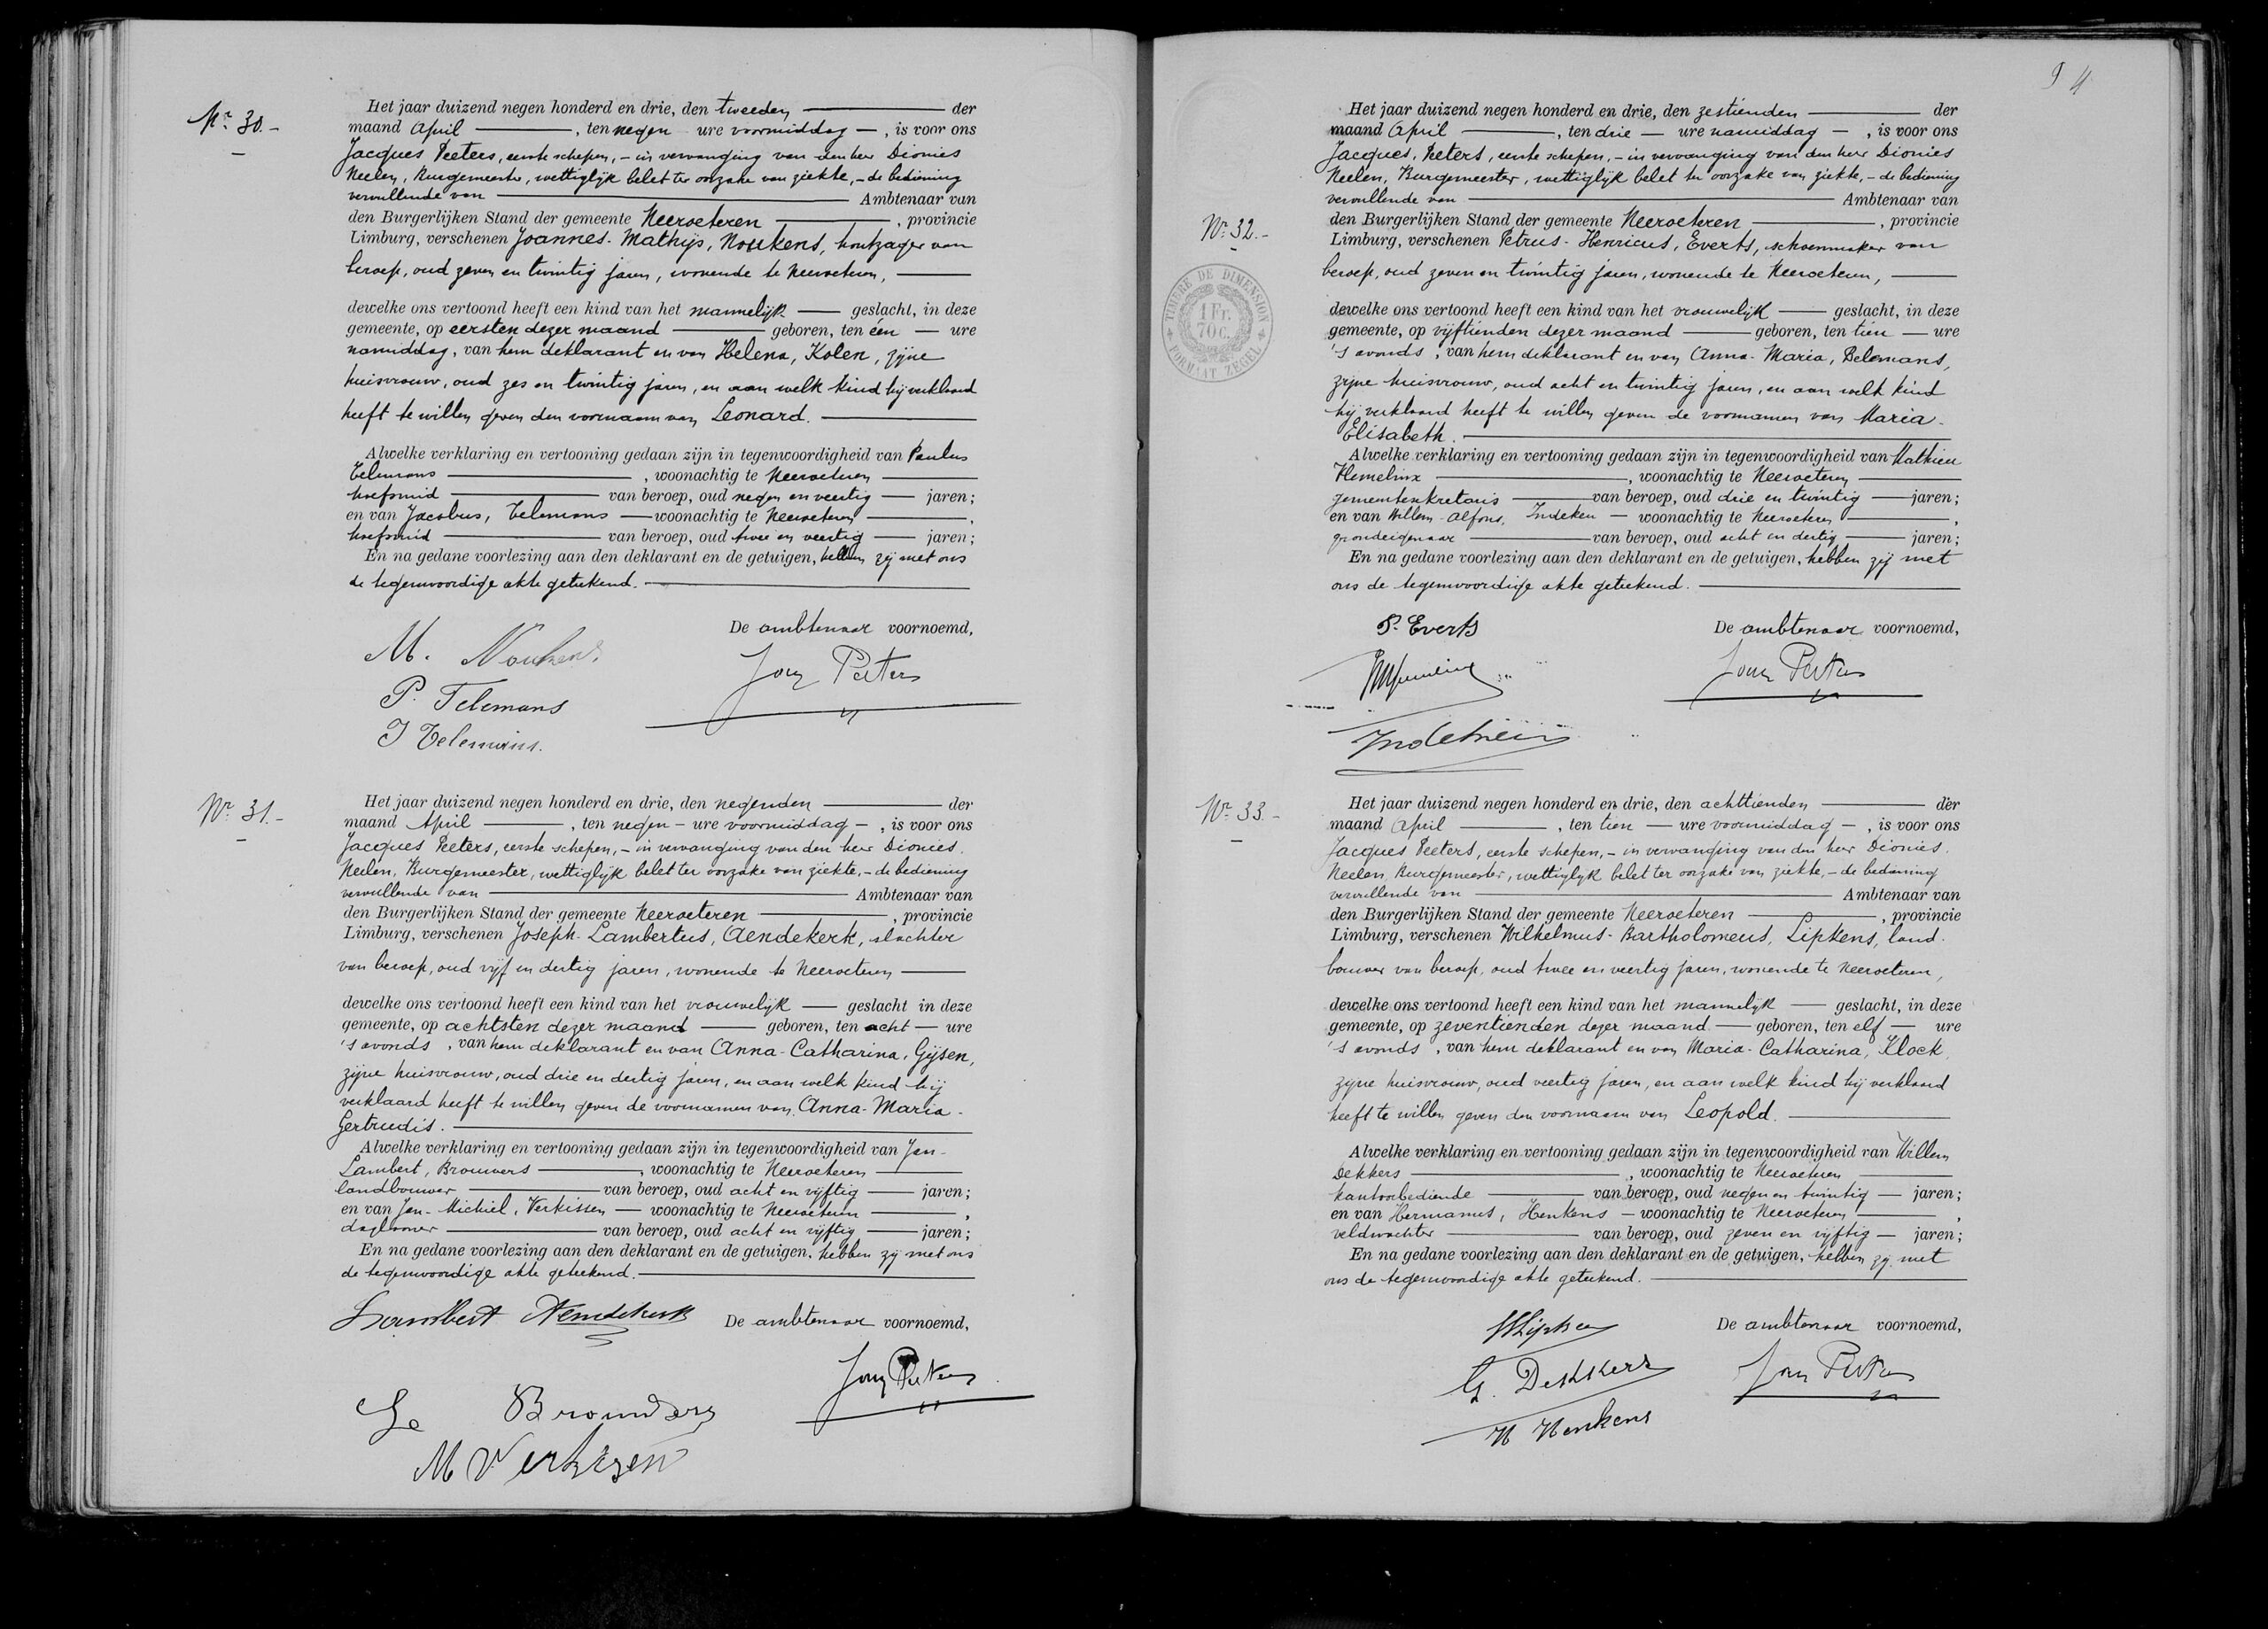 Nr. 30.-
Het jaar duizend negen honderd en drie, den tweeden der
maand April , ten negen ure voormiddag , is voor ons
Jacques Peeters, eerste schepen, - in vervanging van den heer Dionies
Neelen, Burgemeester, wettiglijk belet ter oorzake van ziekte, - de bediening
vervullende van Ambtenaar van
den Burgerlijken Stand der gemeente Neeroeteren , provincie
Limburg, verschenen Joannes-Mathijs, Noukens, houtzager van
beroep, oud zeven en twintig jaren, wonende te Neeroeteren,
dewelke ons vertoond heeft een kind van het mannelijk geslacht, in deze
gemeente, op eersten dezer maand geboren, ten één ure
namiddag, van hem deklarant en van Helena, Kolen, zijne
huisvrouw, oud zes en twintig jaren, en aan welk kind hij verklaard
heeft te willen geven den voornaam van Leonard.
Alwelke verklaring en vertooning gedaan zijn in tegenwoordigheid van Paulus
Telemans , woonachtig te Neeroeteren
hoefsmid van beroep, oud negen en veertig jaren;
en van Jacobus, Telemans woonachtig te Neeroeteren ,
hoefsmid van beroep, oud twee en veertig jaren;
En na gedane voorlezing aan den deklarant en de getuigen, hebben zij met ons
de tegenwoordige akte geteekend.
De ambtenaar voornoemd,
M. Noukens.
Peeters
P. Telemans
J Telemans.
Nr. 31.-
Het jaar duizend negen honderd en drie, den negenden der
maand April , ten negen - ure voormiddag - , is voor ons
Jacques Peeters, eerste schepen, - in vervanging van den heer Dionies.
Neelen, Burgemeester, wettiglijk belet ter oorzake van ziekte, - de bediening
vervullende van Ambtenaar van
den Burgerlijken Stand der gemeente Neeroeteren , provincie
Limburg, verschenen Joseph-Lambertus, Aendekerk, slachter
van beroep, oud vijf en dertig jaren, wonende te Neeroeteren
dewelke ons vertoond heeft een kind van het vrouwelijk geslacht in deze
gemeente, op achtsten dezer maand geboren, ten acht ure
's avonds, van hem deklarant en van Anna-Catharina, Gijsen,
zijne huisvrouw, oud drie en dertig jaren, en aan welk kind hij
verklaard heeft te willen geven de voornamen van Anna-Maria-
Gertrudis.
Alwelke verklaring en vertooning gedaan zijn in tegenwoordigheid van Jan-
Lambert, Brouwers , woonachtig te Neeroeteren
landbouwer van beroep, oud acht en vijftig jaren;
en van Jan-Michiel, Verkissen woonachtig te Neeroeteren ,
daglooner van beroep, oud acht en vijftig jaren;
En na gedane voorlezing aan den deklarant en de getuigen, hebben zij met ons
de tegenwoordige akte geteekend.
Lambert Aendekerk De ambtenaar voornoemd,
Peeters
Brouwers
M Verkissen
94
Het jaar duizend negen honderd en drie, den zestienden der
maand April , ten drie ure namiddag , is voor ons
Jacques, Peeters, eerste schepen, - in vervanging van den heer Dionies
Neelen, Burgemeester, wettiglijk belet ter oorzake van ziekte, - de bediening
vervullende van Ambtenaar van
Nr. 32.-
den Burgerlijken Stand der gemeente Neeroeteren , provincie
Limburg, verschenen Petrus-Henricus, Everts, schoenmaker van
beroep, oud zeven en twintig jaren, wonende te Neeroeteren,
TIMBRE DE DIMENSION
1 Fr.
70 c.
FORMAAT ZEGEL
dewelke ons vertoond heeft een kind van het vrouwelijk geslacht, in deze
gemeente, op vijftienden dezer maand geboren, ten tien ure
's avonds, van hem deklarant en van Anna-Maria, Belemans,
zijne huisvrouw, oud acht en twintig jaren, en aan welk kind
hij verklaard heeft te willen geven de voornamen van Maria-
Elisabeth.
Alwelke verklaring en vertooning gedaan zijn in tegenwoordigheid van Mathieu
Hemelinx , woonachtig te Neeroeteren
gemeentesekretaris van beroep, oud drie en twintig jaren;
en van Willem-Alfons, Indekeu woonachtig te Neeroeteren ,
grondeigenaar van beroep, oud acht en dertig jaren;
En na gedane voorlezing aan den deklarant en de getuigen, hebben zij met
ons de tegenwoordige akte geteekend.
P. Everts De ambtenaar voornoemd,
Peeters
Nr. 33.-
Het jaar duizend negen honderd en drie, den achttienden der
maand April , ten tien ure voormiddag , is voor ons
Jacques Peeters, eerste schepen, - in vervanging van den heer Dionies.
Neelen, Burgemeester, wettiglijk belet ter oorzake van ziekte, - de bediening
vervullende van Ambtenaar van
den Burgerlijken Stand der gemeente Neeroeteren , provincie
Limburg, verschenen Wilhelmus-Bartholomeus, Lipkens, land-
bouwer van beroep, oud twee en veertig jaren, wonende te Neeroeteren,
dewelke ons vertoond heeft een kind van het mannelijk geslacht, in deze
gemeente, op zeventienden dezer maand geboren, ten elf ure
's avonds, van hem deklarant en van Maria-Catharina, Klock,
zijne huisvrouw, oud veertig jaren, en aan welk kind hij verklaard
heeft te willen geven den voornaam van Leopold.
Alwelke verklaring en vertooning gedaan zijn in tegenwoordigheid van Willem
Dekkers , woonachtig te Neeroeteren
kantoorbediende van beroep, oud negen en twintig jaren;
en van Hermanus, Henkens woonachtig te Neeroeteren ,
veldwachter van beroep, oud zeven en vijftig jaren;
En na gedane voorlezing aan den deklarant en de getuigen, hebben zij met
ons de tegenwoordige akte geteekend.
De ambtenaar voornoemd,
G. Dekkers Peeters
H Henkens